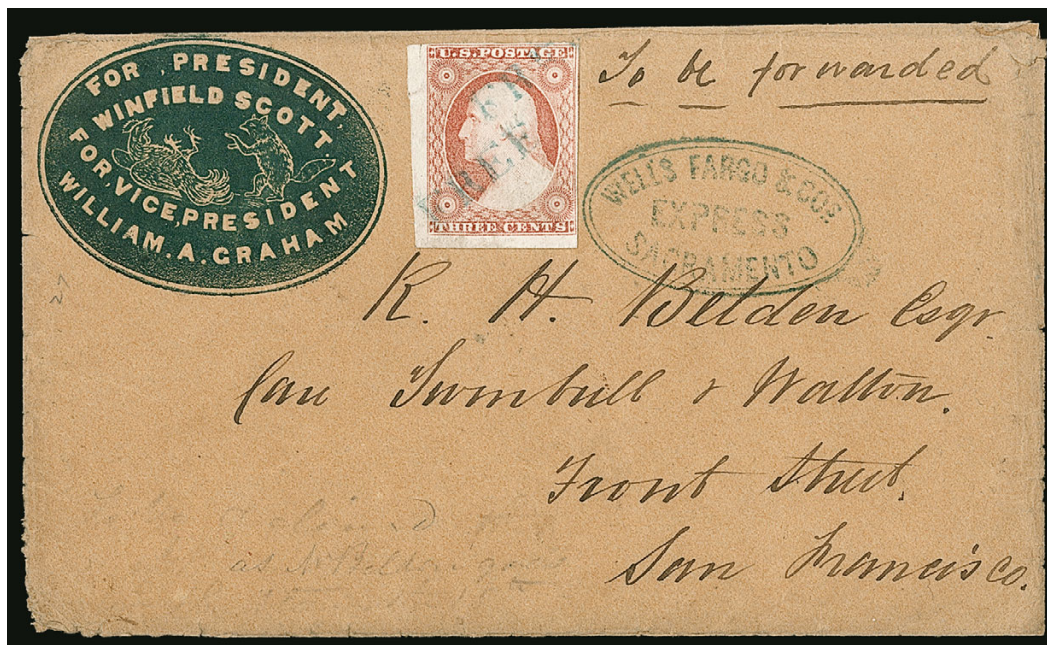 FOR PRESIDENT,
WINFIELD SCOTT
FOR, VICE, PRESIDENT
WILLIAM. A. GRAHAM
U.S. POSTAGE
FREE
THREE CENTS
To be forwarded
WELLS FARGO & COS
EXPRESS
SACRAMENTO
R. H. Belden Esqr.
Care Turnbull & Walton.
Front Street.
San Francisco.